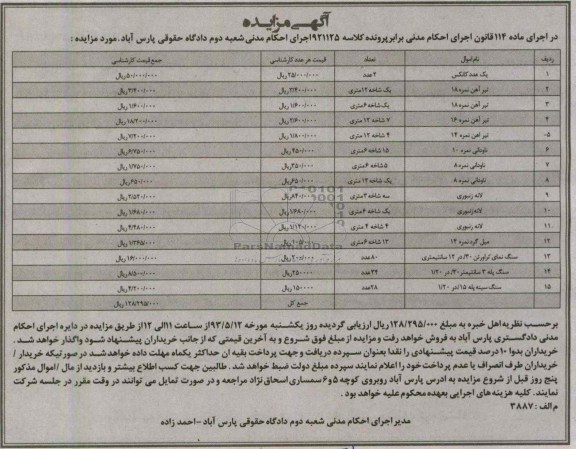 آگهی مزایده
در اجرای ماده ۱۱۴ قانون اجرای احکام مدنی برابر پرونده کلاسه ۹۲۱۱۲۵ اجرای احکام مدنی شعبه دوم دادگاه حقوقی پارس آباد. مورد مزایده :
ردیف نام اموال تعداد قیمت هر عدد کارشناسی جمع قیمت کارشناسی
۱ یک عدد کانکس ۲ عدد ۲۵/۰۰۰/۰۰۰ ریال ۵۰/۰۰۰/۰۰۰ ریال
۲ تیر آهن نمره ۱۸ یک شاخه ۱۲ متری ۳/۴۰۰/۰۰۰ ریال ۳/۴۰۰/۰۰۰ ریال
۳ تیر آهن نمره ۱۸ یک شاخه ۶ متری ۱/۶۰۰/۰۰۰ ریال ۱/۶۰۰/۰۰۰ ریال
۴ تیر آهن نمره ۱۶ ۷ شاخه ۱۲ متری ۲/۶۰۰/۰۰۰ ریال ۱۸/۲۰۰/۰۰۰ ریال
۵ تیر آهن نمره ۱۴ ۴ شاخه ۱۲ متری ۱/۸۰۰/۰۰۰ ریال ۷/۲۰۰/۰۰۰ ریال
۶ ناودانی نمره ۱۰ ۱۵ شاخه ۶ متری ۴۵۰/۰۰۰ ریال ۶/۷۵۰/۰۰۰ ریال
۷ ناودانی نمره ۸ ۵ شاخه ۶ متری ۳۵۰/۰۰۰ ریال ۱/۷۵۰/۰۰۰ ریال
۸ ناودانی نمره ۸ یک شاخه ۱۲ متری ۶۵۰/۰۰۰ ریال ۶۵۰/۰۰۰ ریال
۹ لانه زنبوری سه شاخه ۳ متری ۸۴۰/۰۰۰ ریال ۲/۵۲۰/۰۰۰ ریال
۱۰ لانه زنبوری یک شاخه ۶ متری ۱/۶۸۰/۰۰۰ ریال ۱/۶۸۰/۰۰۰ ریال
۱۱ لانه زنبوری ۴ شاخه ۴ متری ۱/۱۲۰/۰۰۰ ریال ۴/۴۸۰/۰۰۰ ریال
۱۲ میل گرد نمره ۱۴ ۱۳ شاخه ۶ متری ۱۰۵/۰۰۰ ریال ۱/۳۶۵/۰۰۰ ریال
۱۳ سنگ نمای تراورتن ۳۰ در ۱۲ سانتیمتری ۸۰ عدد ۲۰۰/۰۰۰ ریال ۱۶/۰۰۰/۰۰۰ ریال
۱۴ سنگ پله ۳ سانتیمتر ۳۰/ در ۱/۲۰ ۳۴ عدد ۲۵۰۰۰۰ ریال ۸/۵۰۰/۰۰۰ ریال
۱۵ سنگ سینه پله ۱۵/ در ۱/۲۰ ۲۸ عدد ۱۵۰۰۰۰ ریال ۴/۲۰۰/۰۰۰ ریال
جمع کل ۱۲۸/۲۹۵/۰۰۰ ریال
ParsNamadData
برحسب نظریه اهل خبره به مبلغ ۱۲۸/۲۹۵/۰۰۰ ریال ارزیابی گردیده روز یکشنبه مورخه ۹۳/۵/۱۲ از ساعت ۱۱ الی ۱۲ از طریق مزایده در دایره اجرای احکام
مدنی دادگستری پارس آباد به فروش خواهد رفت و مزایده از مبلغ فوق شروع و به آخرین قیمتی که از جانب خریداران پیشنهاد شود واگذار خواهد شد.
خریداران بدوا ۱۰ درصد قیمت پیشنهادی را نقدا بعنوان سپرده دریافت و جهت پرداخت بقیه ان حداکثر یکماه مهلت داده خواهد شد در صورتیکه خریدار /
خریداران ظرف انصراف یا عدم پرداخت خود را اعلام نمایند سپرده مبلغ دولت ضبط خواهد شد. طالبین جهت کسب اطلاع بیشتر و بازدید از مال / اموال مذکور
پنج روز قبل از شروع مزایده به ادرس پارس آباد روبروی کوچه ۵ و ۶ سمساری اسحاق نژاد مراجعه و در صورت تمایل می توانند در وقت مقرر در جلسه شرکت
نمایند. کلیه هزینه های اجرایی بعهده محکوم علیه خواهد بود.
م الف : ۳۸۸۷
مدیر اجرای احکام مدنی شعبه دوم دادگاه حقوقی پارس آباد - احمد زاده